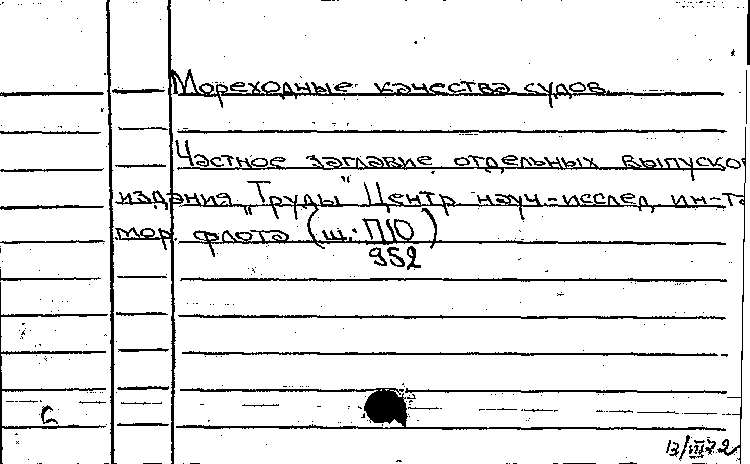 Мореходные качества судов.
Частное заглавие отдельных выпусков
издания „Труды" Центр науч.-исслед. ин-та
мор. флота (ш.: П10
952)
С
13/III72